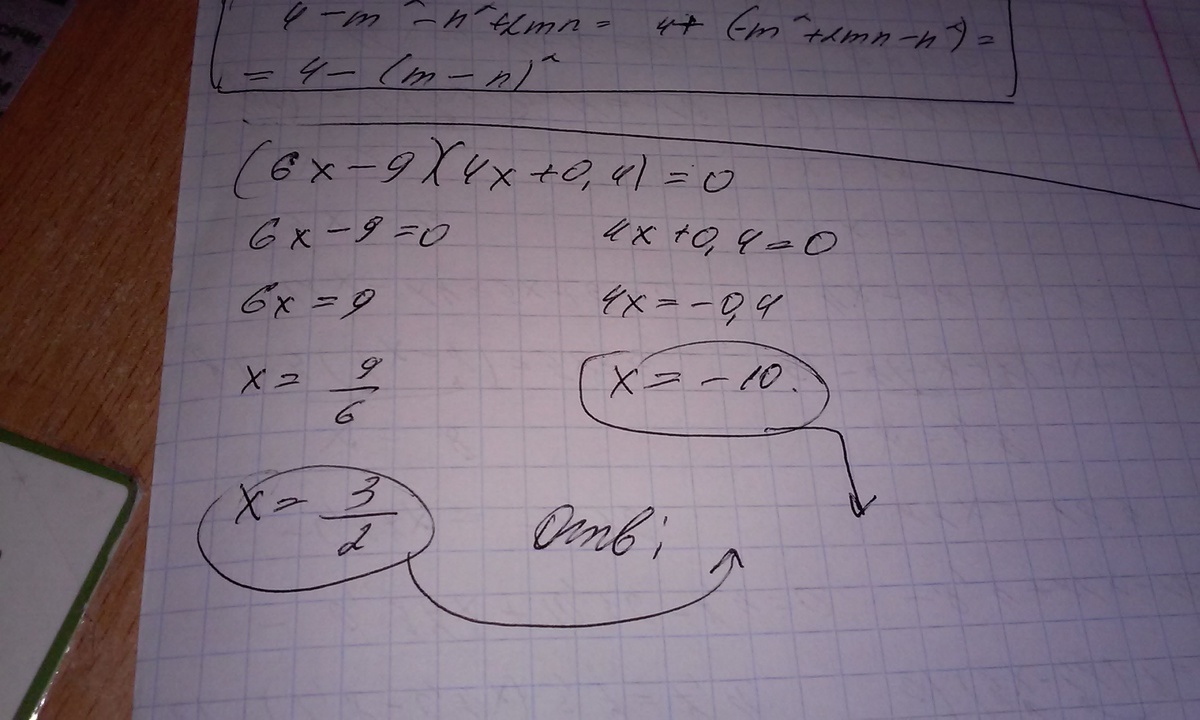 4 - m² - n² + 2mn = 4 + (-m² + 2mn - n²) =
= 4 - (m - n)²
(6x - 9)(4x + 0,4) = 0
6x - 9 = 0 4x + 0,4 = 0
6x = 9 4x = -0,4
x = 9/6 x = -10.
x = 3/2 Отв;